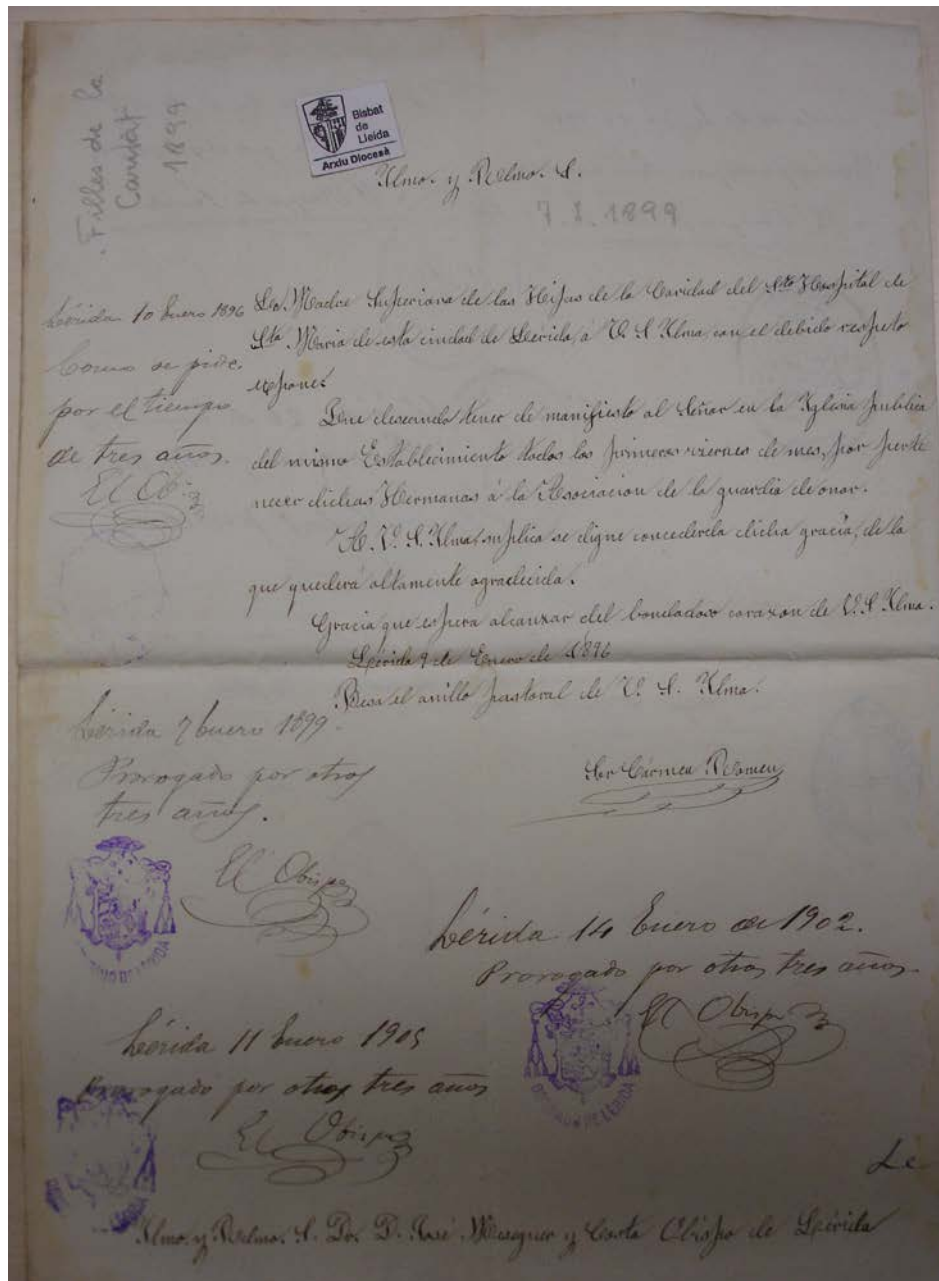 Filles de la
Caritat
1899
Bisbat
de
Lleida
Arxiu Diocesà
Ilmo. y Rvdmo. S.
7.1.1899
Lérida 10 Enero 1896
Como se pide.
por el tiempo
de tres años.
El Ob.
La Madre Superiora de las Hijas de la Caridad del Sto Hospital de
Sta Maria de esta ciudad de Lérida, á V. S. Ilma, con el debido respeto
espone:
Que deseando tener de manifiesto al Señor en la Yglesia publica
del mismo Establecimiento todos los primeros viernes de mes, por perte
necer dichas Hermanas á la Asociacion de la guardia de onor.
A. V. S. Ilma. suplica se digne concederla dicha gracia, de la
que quedera altamente agradecida.
Gracia que espera alcanzar del bondadoso corazon de V. S. Ilma.
Lérida 9 de Enero de 1896
Besa el anillo pastoral de V. S. Ilma.
Sor Cármen Romeu
Lérida 7 Enero 1899.
Prorogado por otros
tres años.
El Obispo
DE LÉRIDA
Lérida 14 Enero de 1902.
Prorogado por otros tres años.
El Obispo
DE LÉRIDA
Lérida 11 Enero 1905
Prorogado por otros tres años
El Obispo
Le
Ilmo. y Rvdmo. S. Dr. D. José Meseguer y Costa Obispo de Lérida